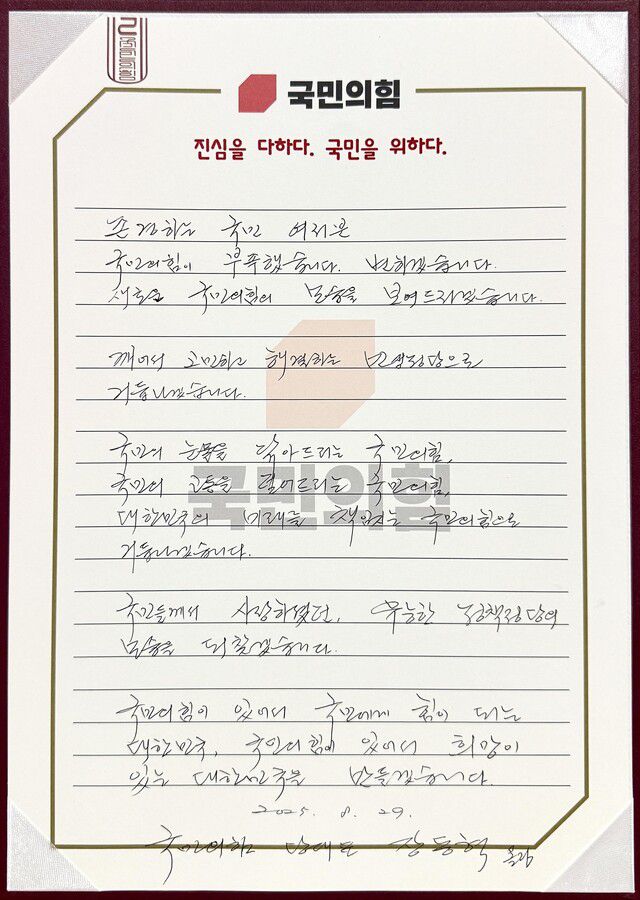 국민의힘
국민의힘
진심을 다하다. 국민을 위하다.
존경하는 국민 여러분
국민의힘이 부족했습니다. 변하겠습니다.
새로운 국민의힘의 모습을 보여드리겠습니다.
깨어서 고민하고 해결하는 민생정당으로
거듭나겠습니다.
국민의 눈물을 닦아드리는 국민의힘,
국민의 고통을 덜어드리는 국민의힘,
국민의힘
대한민국의 미래를 책임지는 국민의힘으로
거듭나겠습니다.
국민들께서 사랑하셨던, 유능한 정책정당의
모습을 되찾겠습니다.
국민의힘이 있어서 국민에게 힘이 되는
대한민국, 국민의힘이 있어서 희망이
있는 대한민국을 만들겠습니다.
2025. 8. 29.
국민의힘 당대표 장동혁 올림